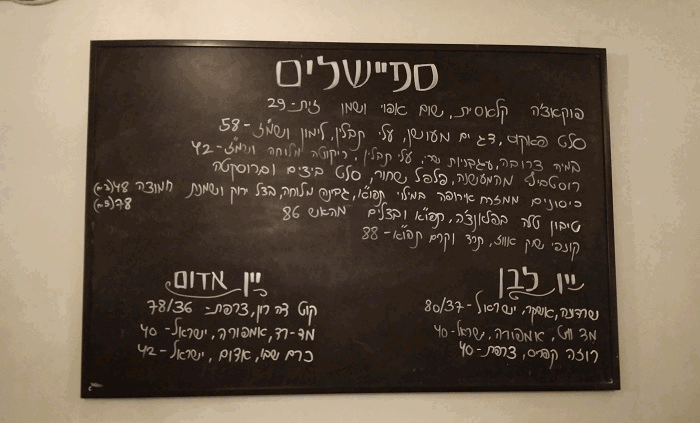 ספיישלים
פוקאצ'ה קלאסית, שום אפוי ושמן זית - 29
סלט פאקוס, דגים מעושן, עלי תבלין, לימון ושמ"ז - 58
במיה צרובה, עגבניות שרי, עלי תבלין, ריקוטה מלוחה ושמ"ז - 42
רוסטביף מהמעשנה, פלפל שחור, סלט ביצים וברוסקטה
כיסונים ממזרח אירופה במילוי תפו"א, גבינה מלוחה, בצל ירוק ושמנת חמוצה 48
78
טיבון טלה בפלאנצ'ה, תפו"א ובצלים מהאש 86
קונפי שוק אווז, תרד וקרם תפו"א - 88
יין לבן
שרדונה, אשקר, ישראל - 80/37
מד וויט, אמפורה, ישראל - 40
רוזה קפריס, צרפת - 40
יין אדום
קוט דה רון, צרפת - 78/36
מד-רד, אמפורה, ישראל - 40
כרם שבו, אדום, ישראל - 42